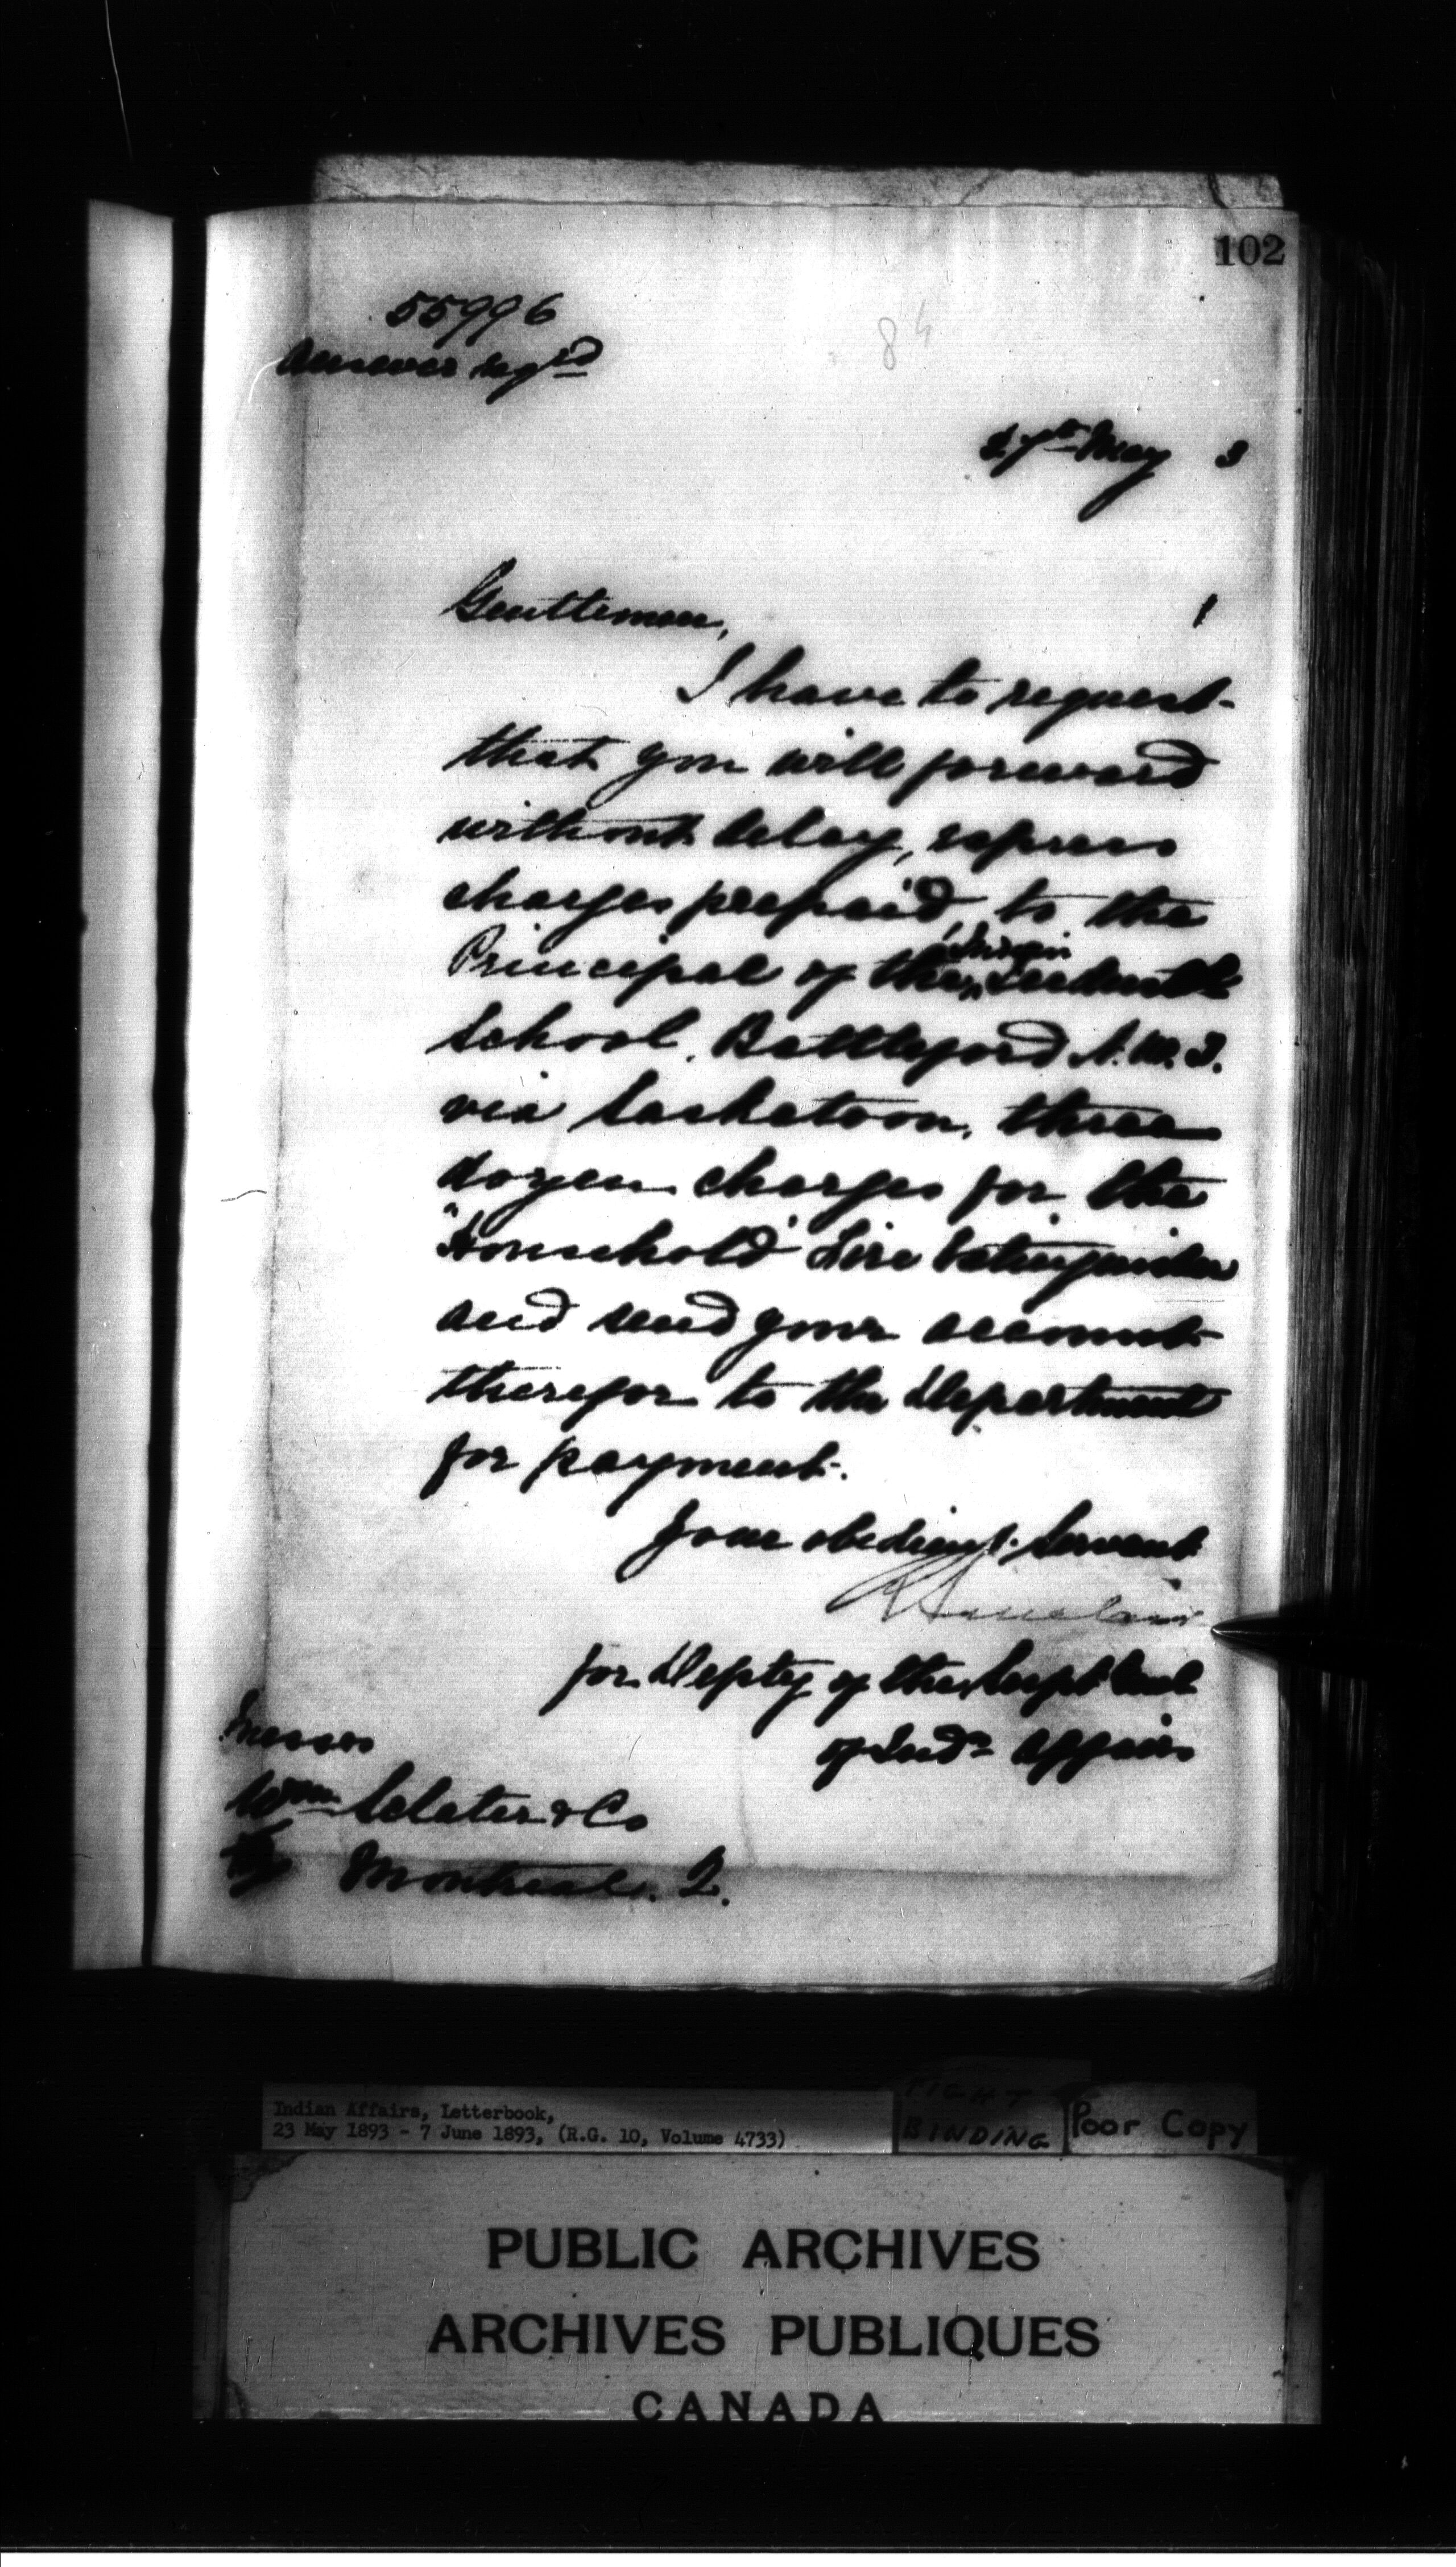 102
55996
Answer reqrd
84
27th May 3
Gentlemen,
I have to request
that you will forward
without delay, express
charges prepaid, to the
Principal of the Indian Industl
School, Battleford N.W.T.
via Saskatoon, three
dozen charges for the
"Household" Fire Extinguisher
and send your account
therefor to the Department
for payment.
Your obedient Servant
R Sinclair
for Depty of the Supt Genl
of Indn Affairs
Messrs
Wm Sclater & Co
Montreal. Q.
Indian Affairs, Letterbook,
23 May 1893 - 7 June 1893, (R.G. 10, Volume 4733)
TIGHT
BINDING
Poor Copy
PUBLIC ARCHIVES
ARCHIVES PUBLIQUES
CANADA